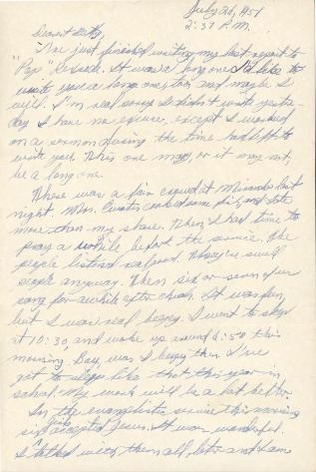 July 26, 1951
2:37 P.M.
Dearest Betty,
I've just finished writing my last report to
"Pop" . It was a long one. I'd like to
write you a long one, too, and maybe I
will. I'm real sorry I didn't write yester-
day. I have no excuse, except I worked
on a sermon during the time I had left to
write you. This one may, or it may not,
be a long one.
There was a fair crowd at last
night. Mrs. cooked some and I ate
more than my share. Then I had time to
pray a while before the service. The
people listened real good. They're swell
people anyway. Then six or seven of us
sang for awhile after church. It was fun,
but I was real sleepy. I went to sleep
at 10:30, and woke up around 6:50 this
morning. Boy, was I happy then. I've
got to sleep like that this year in
school. My work will be a lot better.
In the evangelistic service this morning
six accepted Jesus. It was wonderful.
I talked with them all, later and I am